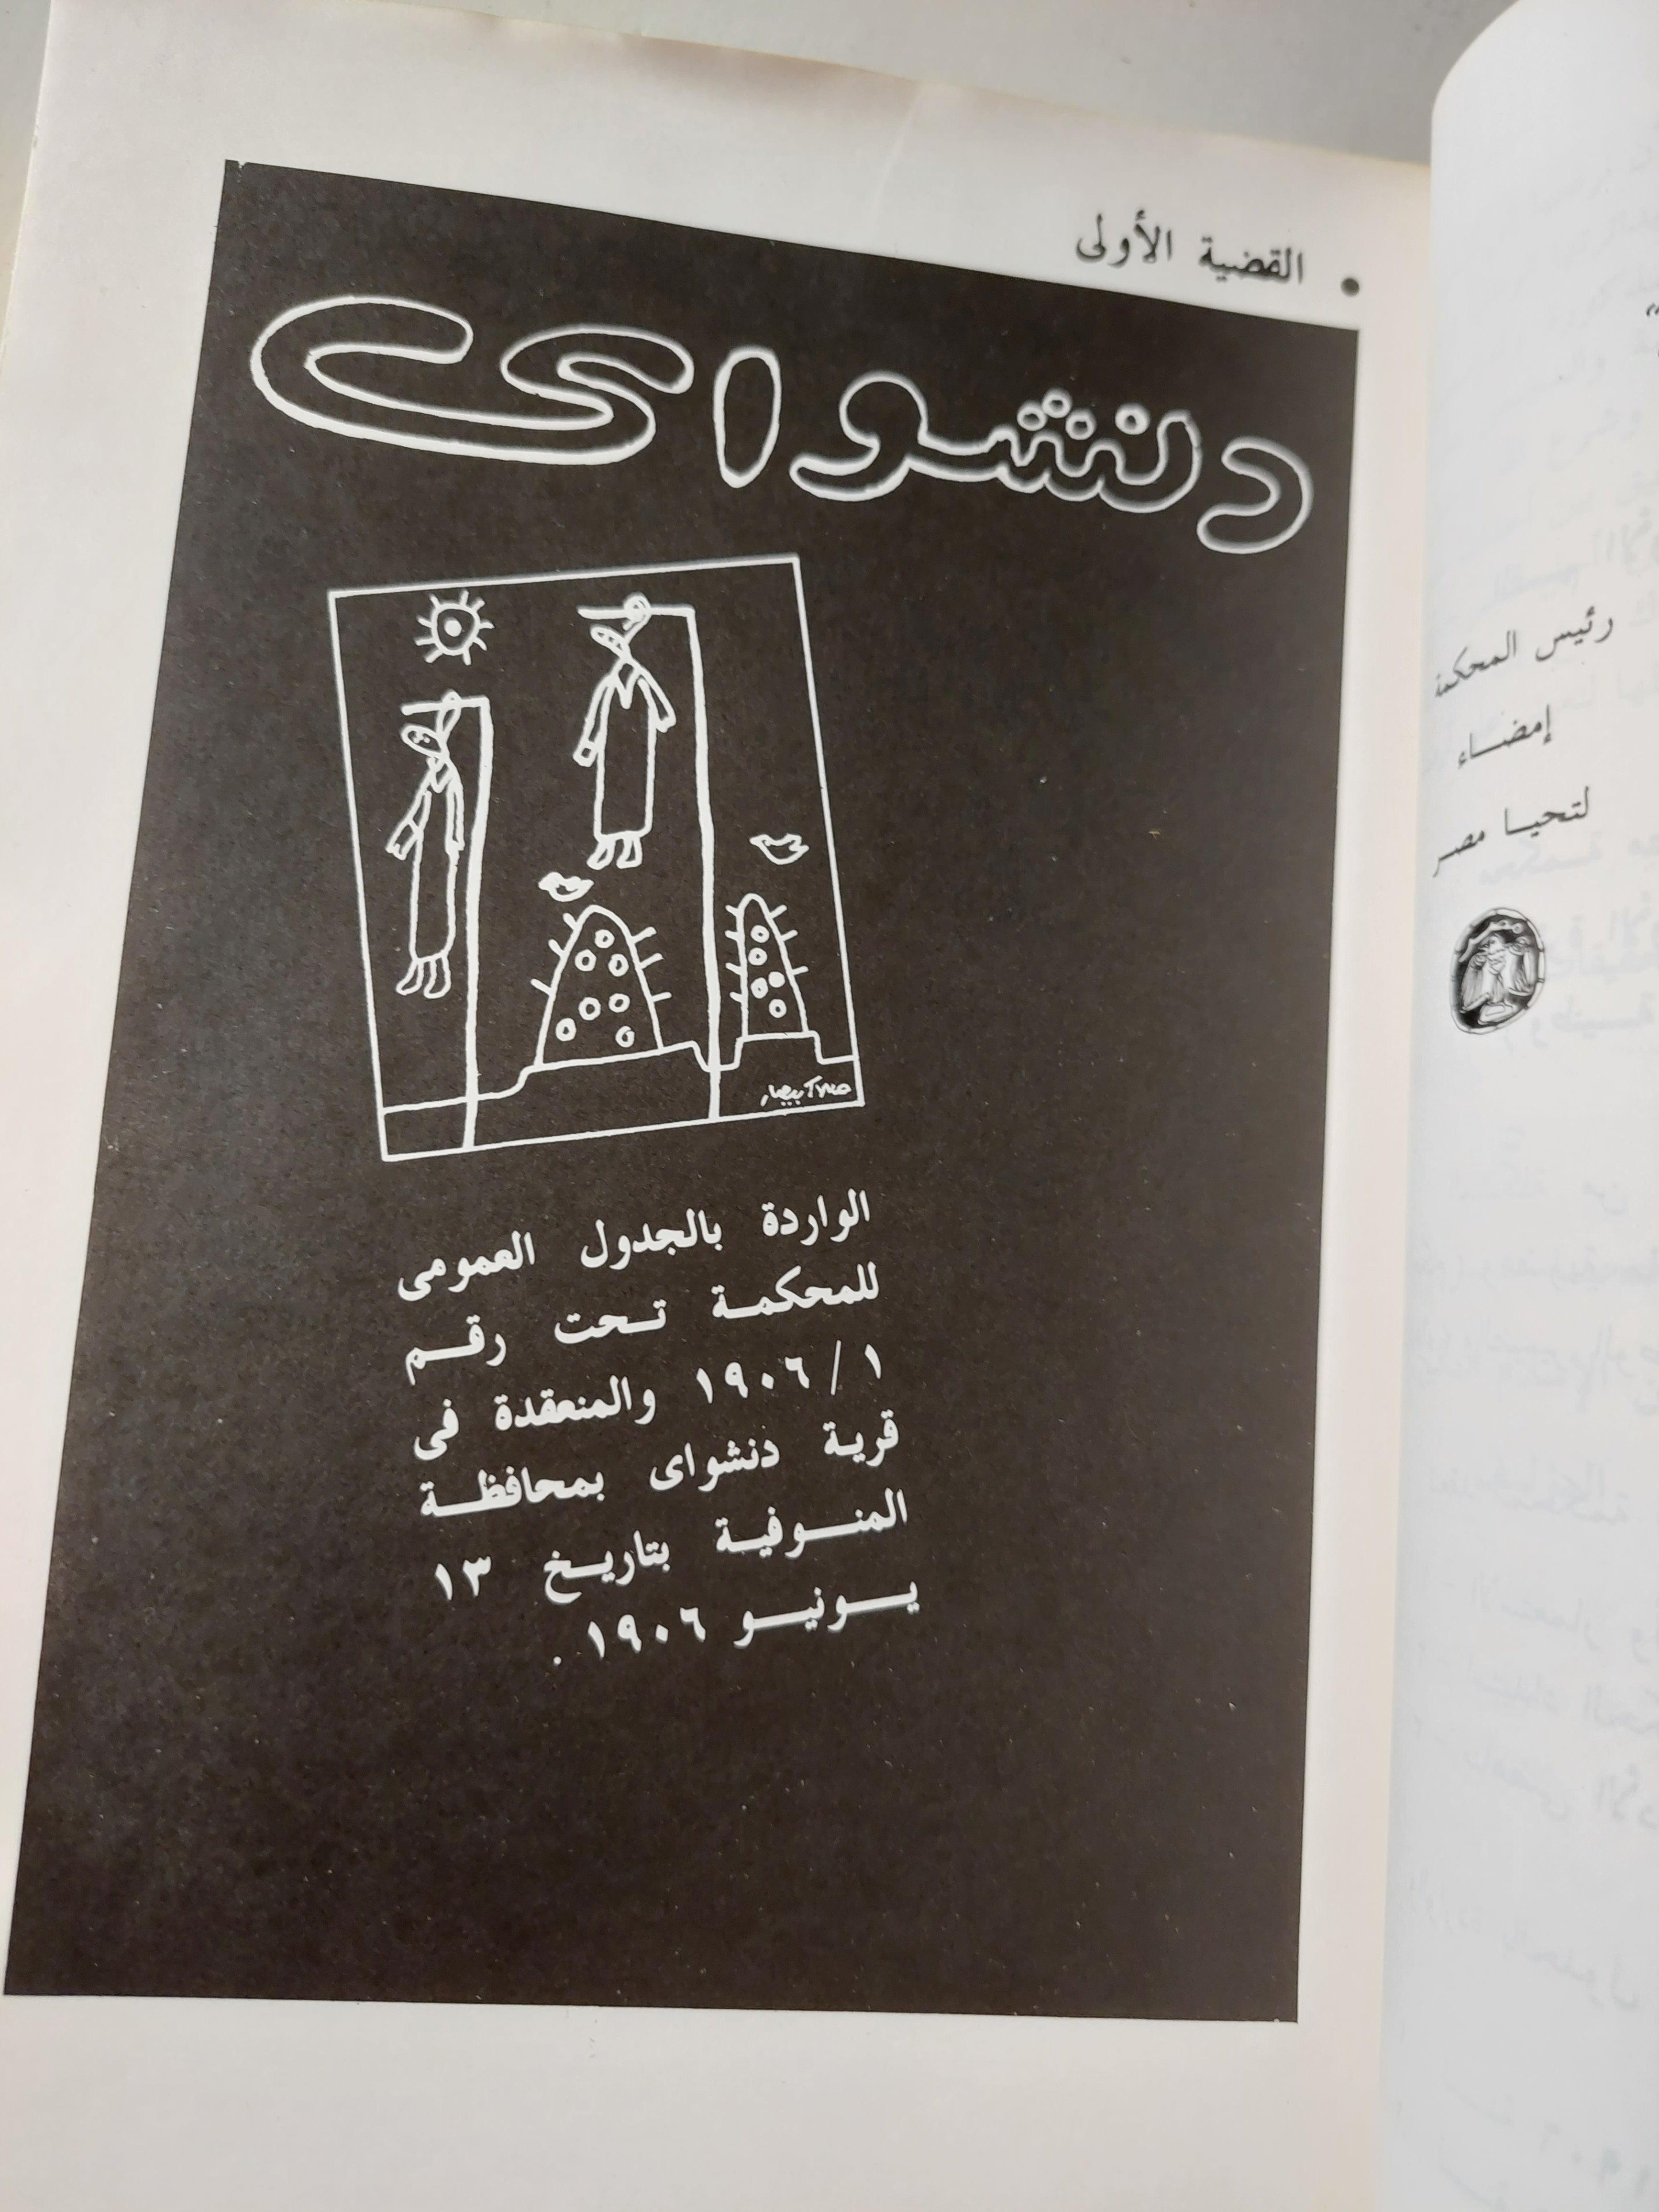 القضية الأولى
دنشواى
الواردة بالجدول العمومى
للمحكمة تحت رقم
١ / ١٩٠٦ والمنعقدة فى
قرية دنشواى بمحافظة
المنوفية بتاريخ ١٣
يونيو ١٩٠٦ .
رئيس المحكمة
إمضاء
لتحيا مصر